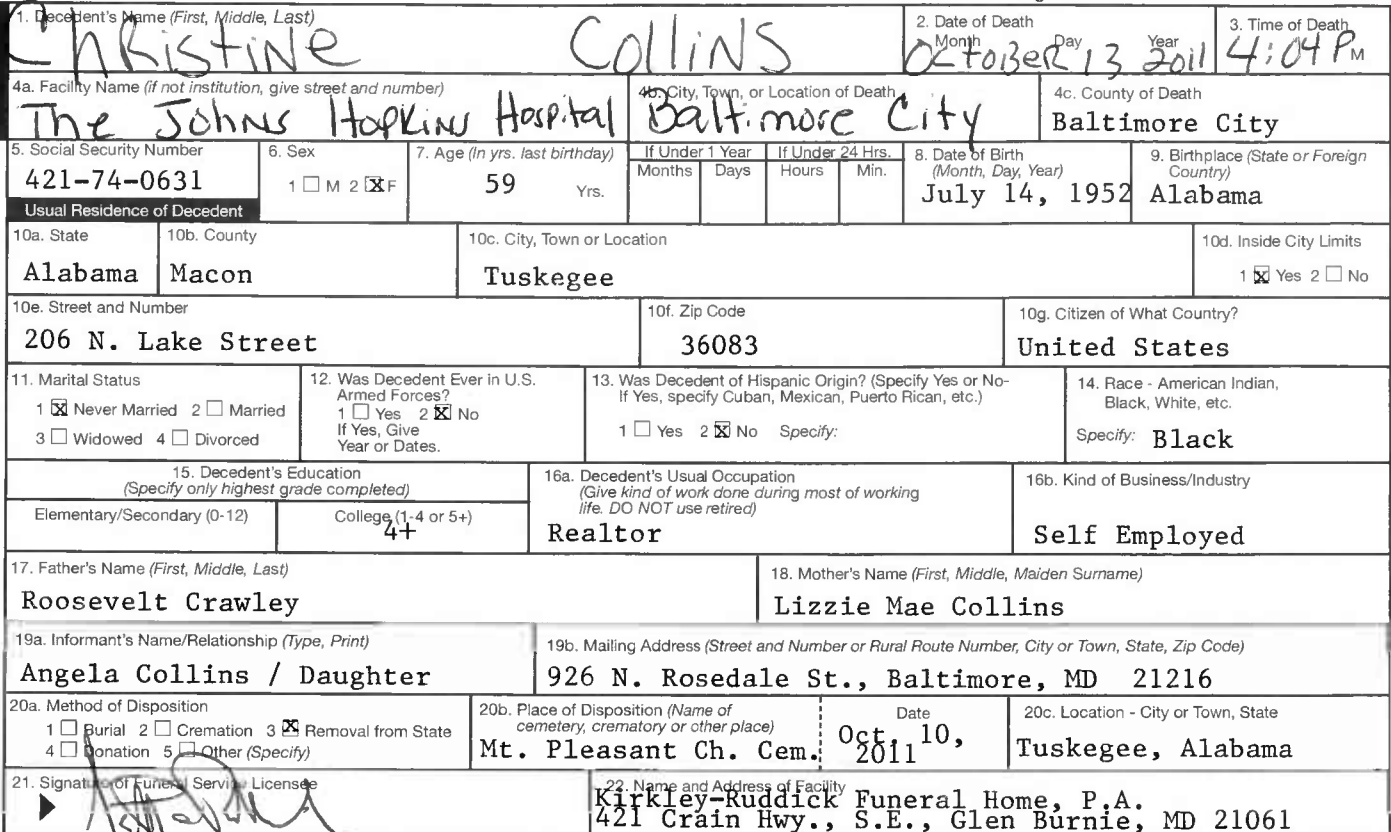 1. Decedent's Name (First, Middle, Last)
Christine Collins
2. Date of Death
Month Day Year
October 13 2011
3. Time of Death
4:04 P M
4a. Facility Name (if not institution, give street and number)
The Johns Hopkins Hospital
4b. City, Town, or Location of Death
Baltimore City
4c. County of Death
Baltimore City
5. Social Security Number
421-74-0631
6. Sex
1 ☐ M 2 ☒ F
7. Age (In yrs. last birthday)
59 Yrs.
If Under 1 Year
Months Days
If Under 24 Hrs.
Hours Min.
8. Date of Birth
(Month, Day, Year)
July 14, 1952
9. Birthplace (State or Foreign
Country)
Alabama
Usual Residence of Decedent
10a. State
Alabama
10b. County
Macon
10c. City, Town or Location
Tuskegee
10d. Inside City Limits
1 ☒ Yes 2 ☐ No
10e. Street and Number
206 N. Lake Street
10f. Zip Code
36083
10g. Citizen of What Country?
United States
11. Marital Status
1 ☒ Never Married 2 ☐ Married
3 ☐ Widowed 4 ☐ Divorced
12. Was Decedent Ever in U.S.
Armed Forces?
1 ☐ Yes 2 ☒ No
If Yes, Give
Year or Dates.
13. Was Decedent of Hispanic Origin? (Specify Yes or No-
If Yes, specify Cuban, Mexican, Puerto Rican, etc.)
1 ☐ Yes 2 ☒ No Specify:
14. Race - American Indian,
Black, White, etc.
Specify: Black
15. Decedent's Education
(Specify only highest grade completed)
Elementary/Secondary (0-12)
College (1-4 or 5+)
4+
16a. Decedent's Usual Occupation
(Give kind of work done during most of working
life. DO NOT use retired)
Realtor
16b. Kind of Business/Industry
Self Employed
17. Father's Name (First, Middle, Last)
Roosevelt Crawley
18. Mother's Name (First, Middle, Maiden Surname)
Lizzie Mae Collins
19a. Informant's Name/Relationship (Type, Print)
Angela Collins / Daughter
19b. Mailing Address (Street and Number or Rural Route Number, City or Town, State, Zip Code)
926 N. Rosedale St., Baltimore, MD 21216
20a. Method of Disposition
1 ☐ Burial 2 ☐ Cremation 3 ☒ Removal from State
4 ☐ Donation 5 ☐ Other (Specify)
20b. Place of Disposition (Name of
cemetery, crematory or other place)
Mt. Pleasant Ch. Cem.
Date
Oct. 10,
2011
20c. Location - City or Town, State
Tuskegee, Alabama
21. Signature of Funeral Service Licensee
22. Name and Address of Facility
Kirkley-Ruddick Funeral Home, P.A.
421 Crain Hwy., S.E., Glen Burnie, MD 21061